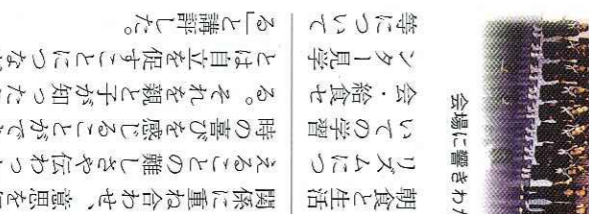 会場に響きわた
朝食と生活
リズムにつ
いての学習
会・給食セ
ンター見学
等について
関係に重ね合わせ、意思を
えることの難しさや伝わっ
時の喜びを感じることがで
る。それを親と子が知った
とは自立を促すことにつな
る」と講評した。